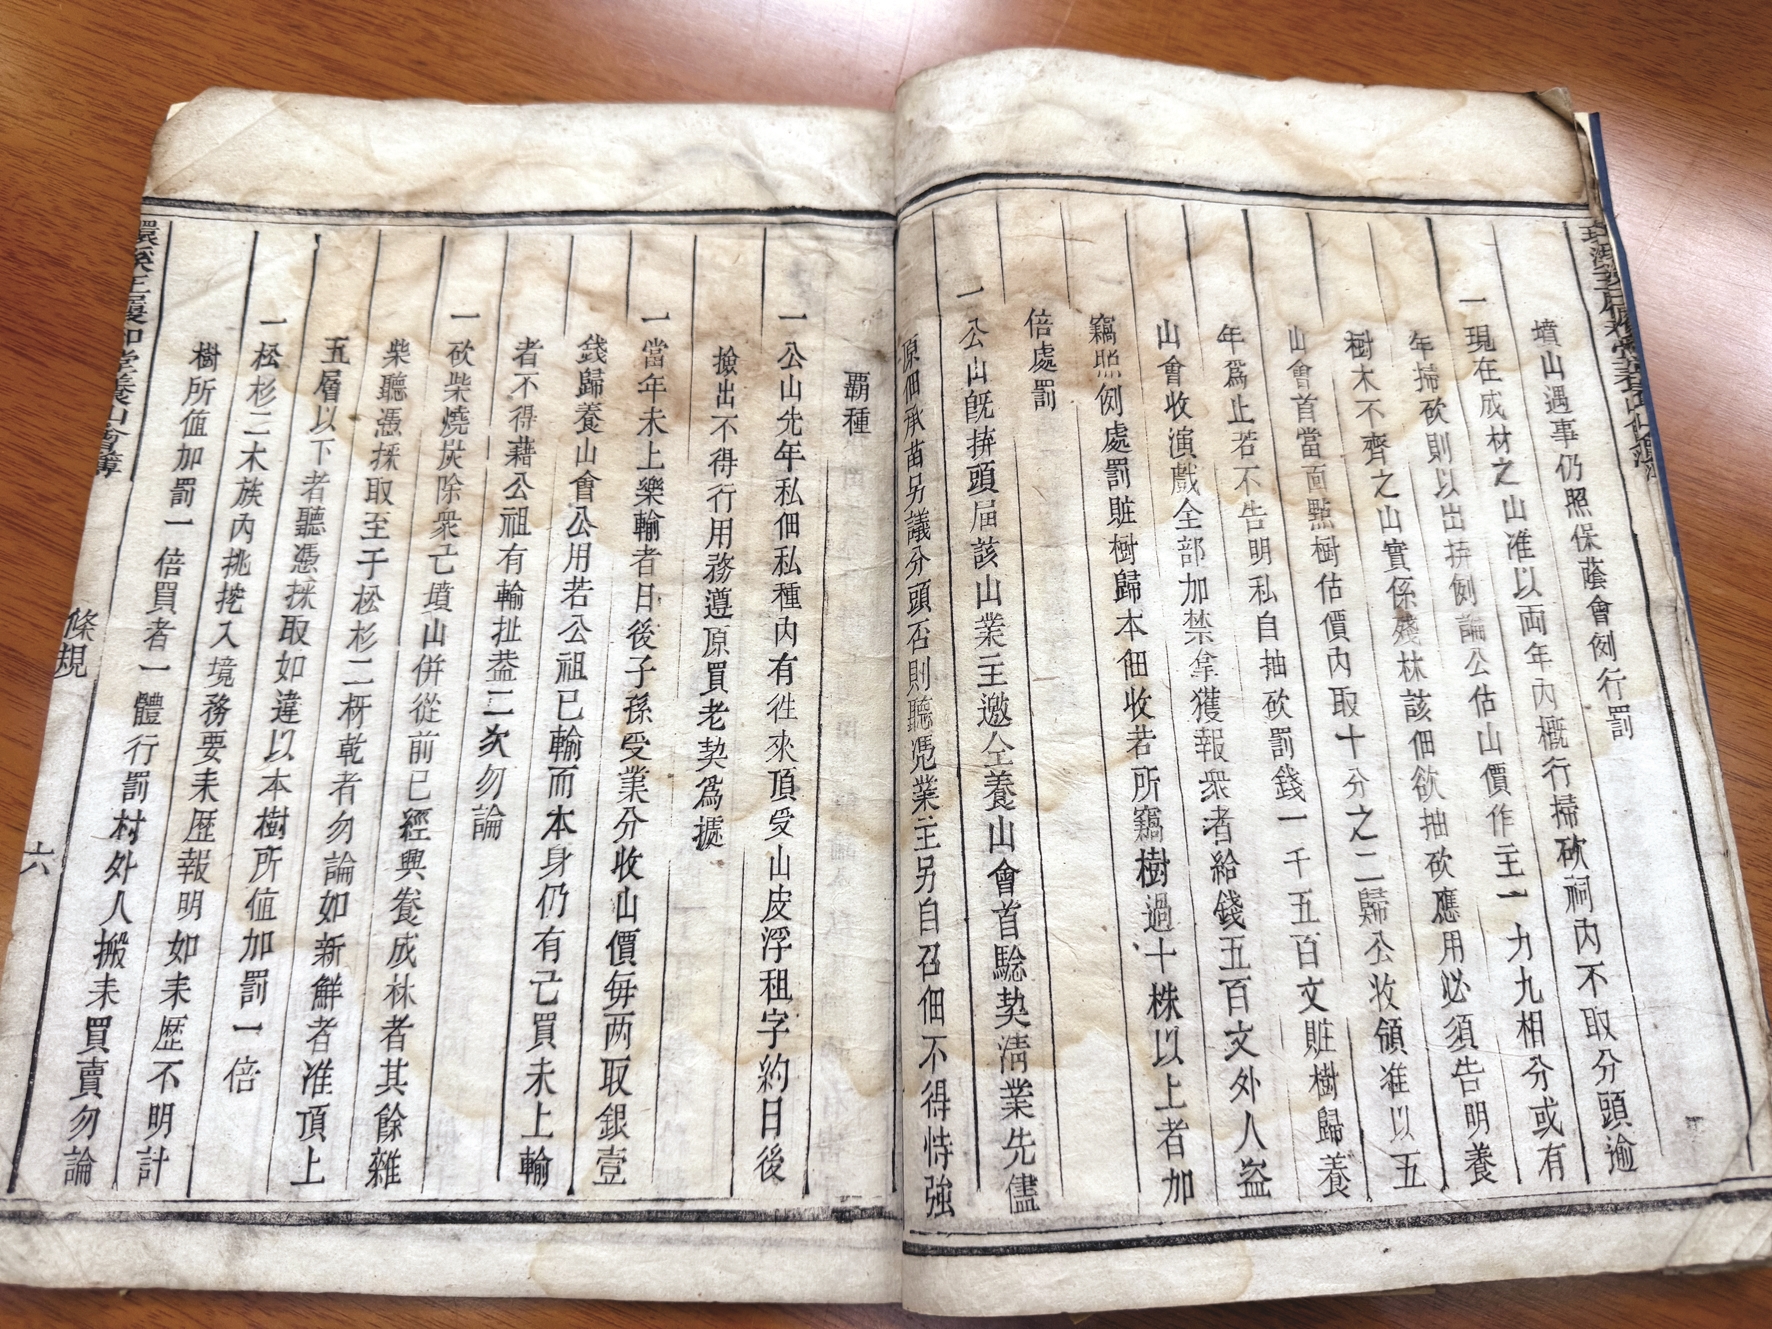 墳山遇事仍照保蔭會例行罰
一現在成材之山准以両年內概行掃砍祠內不取分頭逾
年掃砍則以出拚例論公估山價作主一九九相分或有
樹木不齊之山實係殘林該佃欲抽砍應用必須告明養
山會首當面㸃樹估價內取十分之二歸公收領准以五
年爲止若不告明私自抽砍罰錢一千五百文賍樹歸養
山會收演戲全部加禁拿獲報衆者給錢五百文外人盜
竊照例處罰賍樹歸本佃收若所竊樹過十株以上者加
倍處罰
一公山旣拚頭届該山業主邀仝養山會首騐契淸業先儘
原佃承苗另議分頭否則聽憑業主另自召佃不得恃強
覇種
一公山先年私佃私種內有徃來頂受山皮浮租字約日後
撿出不得行用務遵原買老契爲㨿
一當年未上樂輸者日後子孫受業分收山價每両取銀壹
錢歸養山會公用若公祖已輸而本身仍有己買未上輸
者不得藉公祖有輸扯葢二次勿論
一砍柴燒炭除衆己墳山併從前已經興養成林者其餘雜
柴聽憑採取至于松杉二枒乾者勿論如新鮮者准頂上
五層以下者聽憑採取如違以本樹所值加罰一倍
一松杉二木族內挑挖入境務要来歷報明如来歷不明計
樹所值加罰一倍買者一體行罰村外人搬来買賣勿論
條規
六